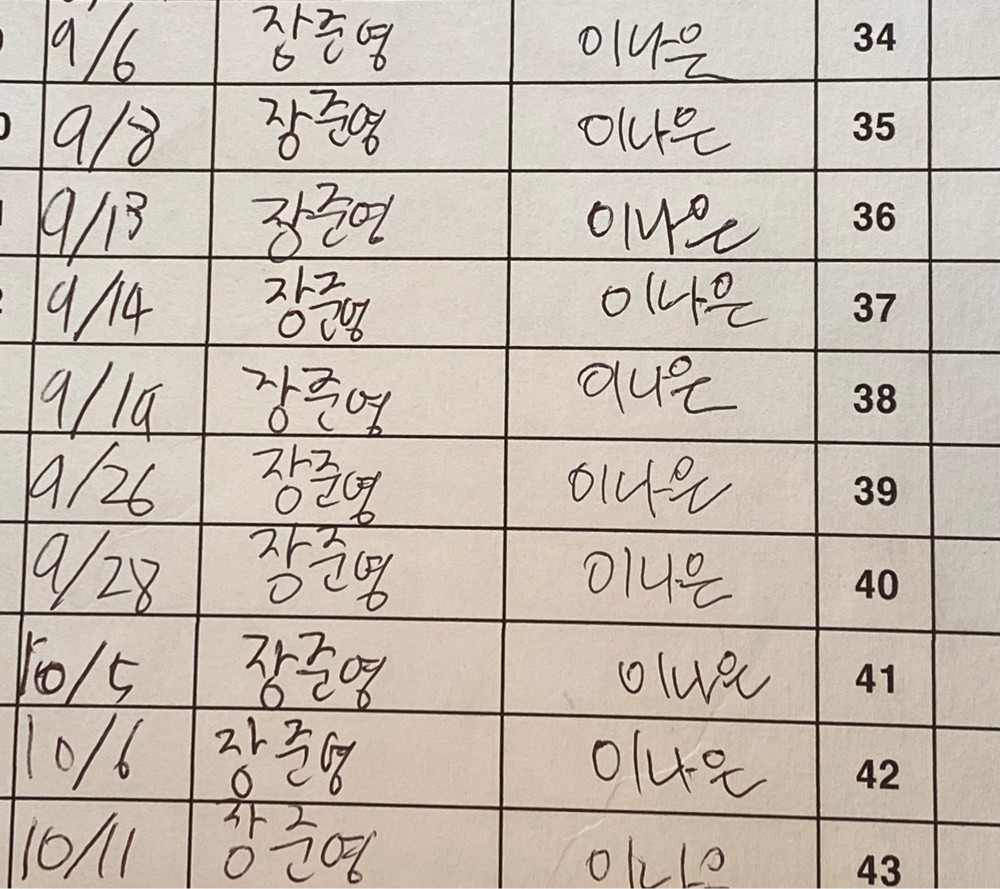 9/6 장준영 이나은 34
9/8 장준영 이나은 35
9/13 장준영 이나은 36
9/14 장준영 이나은 37
9/19 장준영 이나은 38
9/26 장준영 이나은 39
9/28 장준영 이나은 40
10/5 장준영 이나은 41
10/6 장준영 이나은 42
10/11 장준영 이나은 43